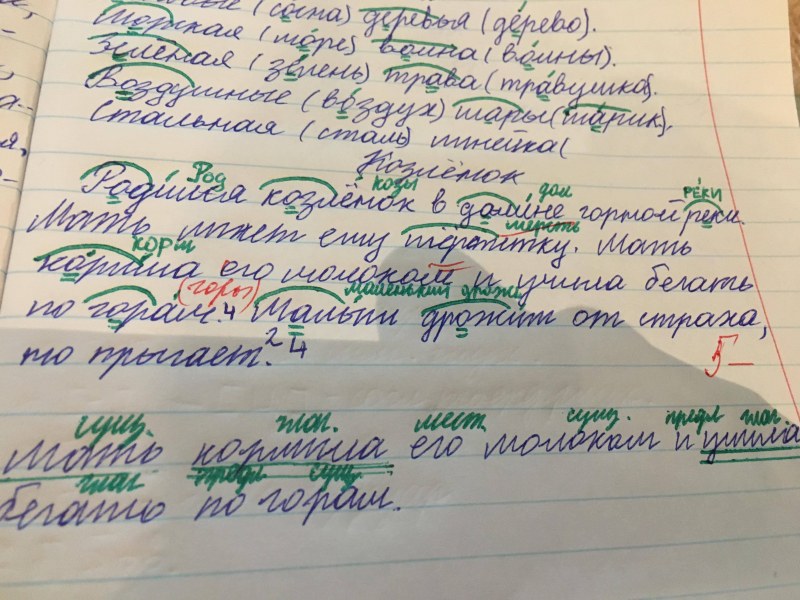 (сосна) деревья (де́рево).
Морская (мо́ре) волна (во́лны).
Зелёная (зе́лень) трава (тра́вушка).
Воздушные (во́здух) шары (ша́рик).
Стальная (сталь) линейка (
Козлёнок
Род козы дом ре́ки
Родился козлёнок в долине горной реки.
шерсть
Мать лижет ему шёрстку. Мать
корм
кормила его молоком и учила бегать
(горы) маленький дрожь
по горам. 4 Малыш дрожит от страха,
то прыгает. 2 4
5-
сущ. глаг. мест. сущ. предл глаг.
Мать кормила его молоком и учила
глаг предл сущ.
бегать по горам.